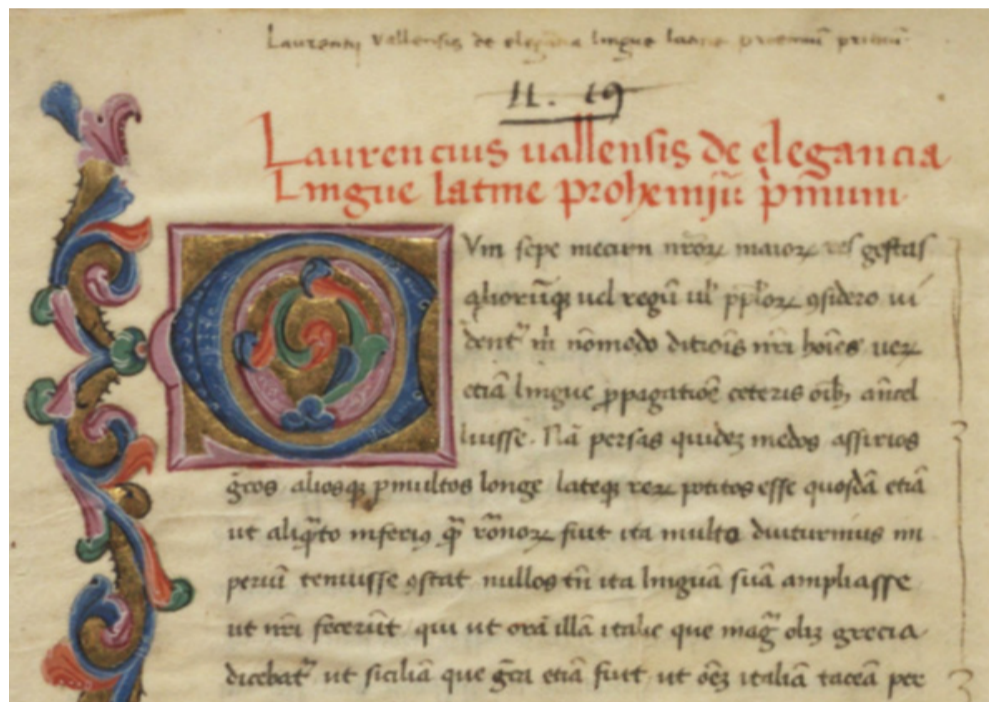 Laurentij Vallensis de elegancia lingue latine proemiū primū
II. 19
Laurencius uallensis de elegancia
Lingue latine prohemjū p̄mum
Cum sepe mecum nr̄oꝝ maioꝝ res gestas
alioꝝūqꝫ uel regū ul' pp̄l'oꝝ ꝯsidero ui
dent᷑ m̄ nōmodo ditiōis nr̄i hoīes ueꝝ
etiā lingue ꝓpagatiōe ceteris oīb, antecel
luisse. Nā persas quideꝫ medos assirios
grc̄os aliosqꝫ ꝑmultos longe lateqꝫ reꝝ potitos esse quosdā etiā
ut aliqͣto inferiꝯ qͣꝫ rōnoꝝ fuit ita multo diuturnius im
periū tenuisse ꝯstat nullos tn̄ ita linguā suā ampliasse
ut nr̄i fecerūt qui ut orā illā italie que mag᷑ olīꝫ grecia
dicebat᷑ ut siciliā que grc̄i etiā fuit ut oēꝫ italiā taceā per